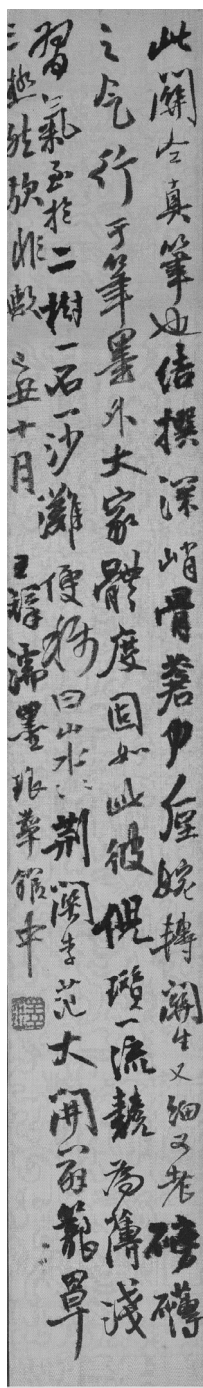 此關仝真筆也結撰深峭骨蒼力婉轉關生又細又老磅礴
之气行于筆墨外大家體度固如此彼倪瓚一流競為薄淺
習氣至於二樹一石一沙灘便稱曰山水〻〻荊關李范大開籠罩
三極然歟非歟己丑十月王鐸濡墨琅華館中